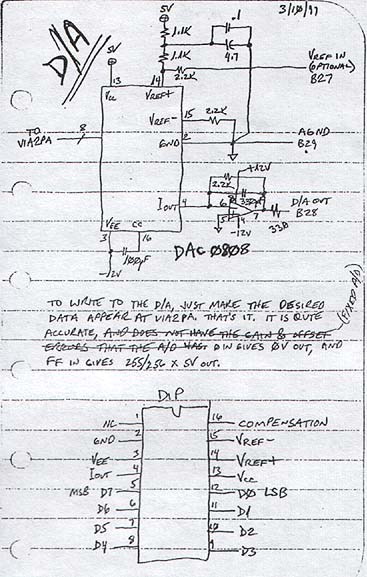 3/10/97
D/A
5V
.1
1.1K
1.1K
4.7
5V
2.2K
VREF IN
(OPTIONAL)
B27
13
14
VCC
VREF+
VREF-
15
2.2K
TO
VIA2PA
8
GND
2
AGND
B29
+12V
2.2K
IOUT
4
6
7
5
4
D/A OUT
B28
33Ω
-12V
VEE
CC
3
16
100pF
-12V
DAC0808
TO WRITE TO THE D/A, JUST MAKE THE DESIRED
DATA APPEAR AT VIA2PA. THAT'S IT. IT IS QUTE
ACCURATE, AND DOES NOT HAVE THE GAIN & OFFSET
ERRORS THAT THE A/D HAS! 0 IN GIVES 0V OUT, AND
FF IN GIVES 255/256 X 5V OUT.
(FIXED A/D)
DIP
NC 1
16 COMPENSATION
GND 2
15 VREF-
VEE 3
14 VREF+
IOUT 4
13 VCC
MSB D7 5
12 D0 LSB
D6 6
11 D1
D5 7
10 D2
D4 8
9 D3